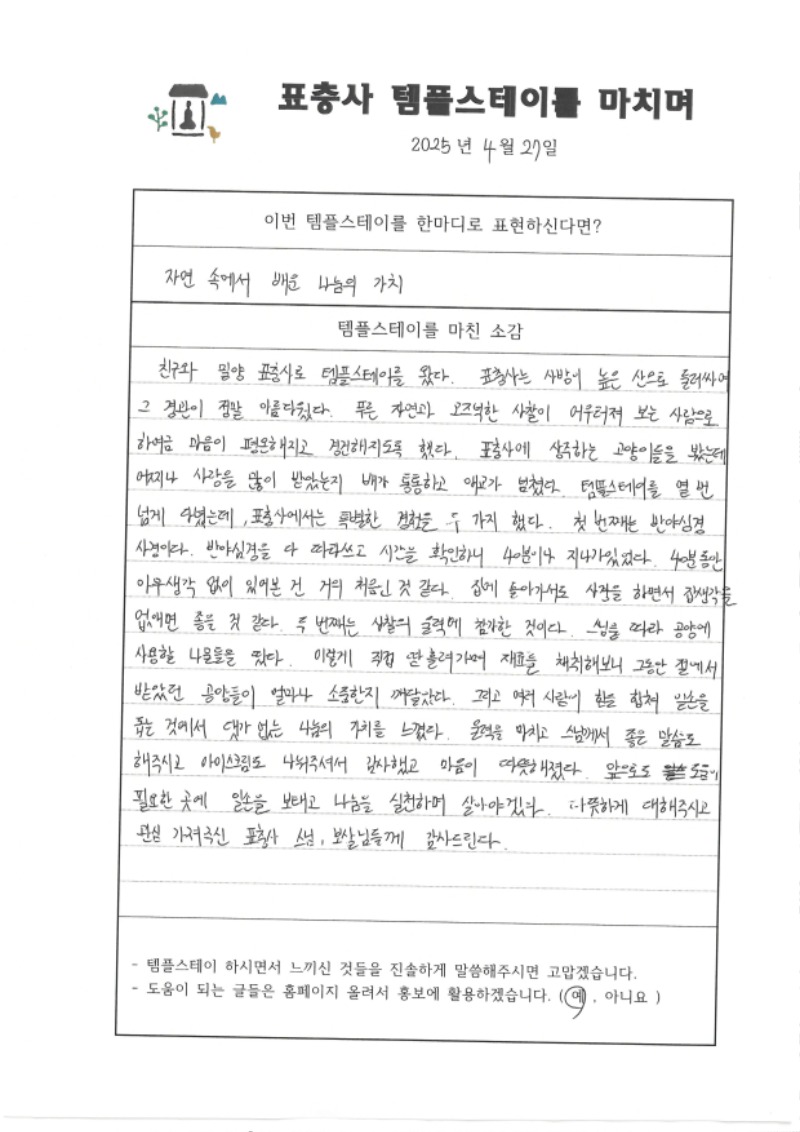 표충사 템플스테이를 마치며
2025년 4월 27일
이번 템플스테이를 한마디로 표현하신다면?
자연 속에서 배운 나눔의 가치
템플스테이를 마친 소감
친구와 밀양 표충사로 템플스테이를 왔다. 표충사는 사방이 높은 산으로 둘러싸여
그 경관이 정말 아름다웠다. 푸른 자연과 고즈넉한 사찰이 어우러져 보는 사람으로
하여금 마음이 평온해지고 경건해지도록 했다. 표충사에 상주하는 고양이들을 봤는데
어찌나 사랑을 많이 받았는지 배가 통통하고 애교가 넘쳤다. 템플스테이를 열 번
넘게 다녔는데, 표충사에서는 특별한 경험을 두 가지 했다. 첫 번째는 반야심경
사경이다. 반야심경을 다 따라쓰고 시간을 확인하니 40분이나 지나가있었다. 40분동안
아무생각 없이 있어본 건 거의 처음인 것 같다. 집에 돌아가서도 사경을 하면서 잡생각을
없애면 좋을 것 같다. 두 번째는 사찰의 울력에 참가한 것이다. 스님을 따라 공양에
사용할 나물들을 땄다. 이렇게 직접 땀흘려가며 재료를 채취해보니 그동안 절에서
받았던 공양들이 얼마나 소중한지 깨달았다. 그리고 여러 사람이 힘을 합쳐 일손을
돕는 것에서 댓가 없는 나눔의 가치를 느꼈다. 울력을 마치고 스님께서 좋은 말씀도
해주시고 아이스크림도 나눠주셔서 감사했고 마음이 따뜻해졌다. 앞으로도 도움이
필요한 곳에 일손을 보태고 나눔을 실천하며 살아야겠다. 따뜻하게 대해주시고
관심 가져주신 표충사 스님, 보살님들께 감사드린다.
- 템플스테이 하시면서 느끼신 것들을 진솔하게 말씀해주시면 고맙겠습니다.
- 도움이 되는 글들은 홈페이지 올려서 홍보에 활용하겠습니다. (예, 아니요 )